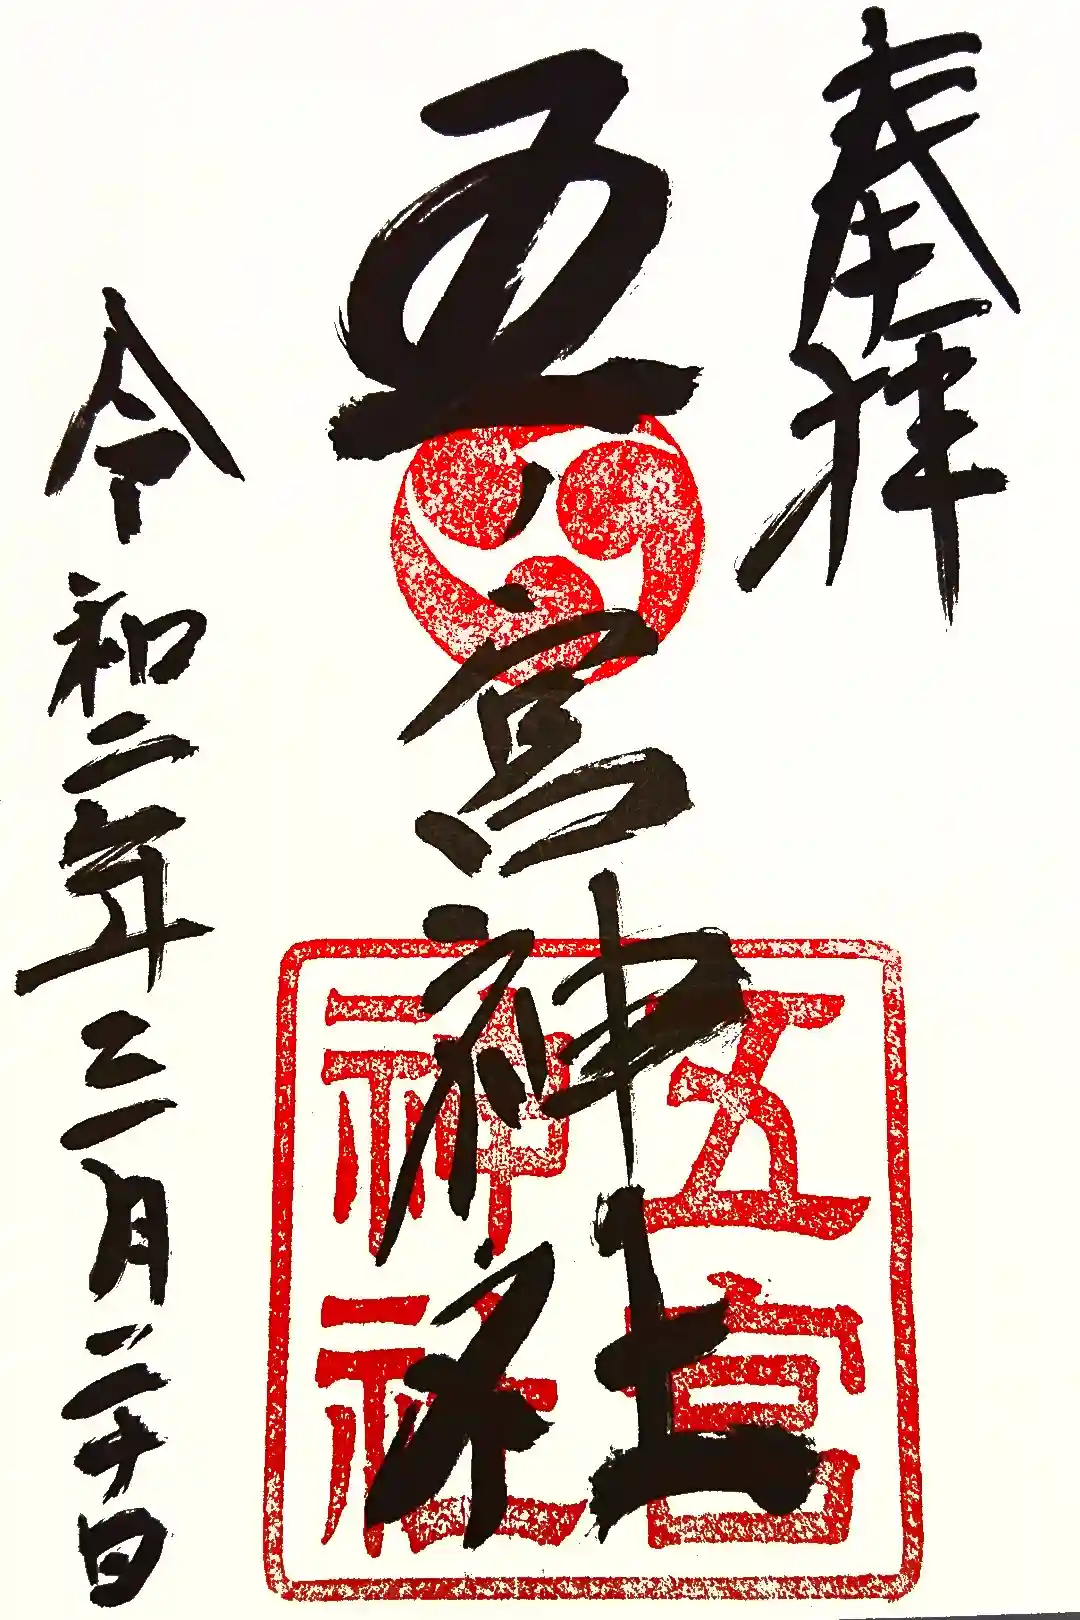 奉拝
五ノ宮神社
五宮
神社
令和二年三月二十日